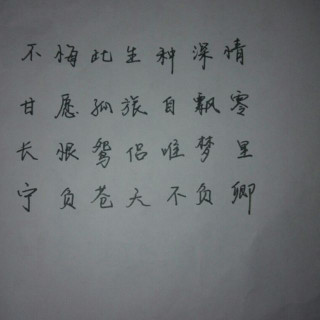 不悔此生种深情
甘愿孤旅自飘零
长恨鸳侣唯梦里
宁负苍天不负卿